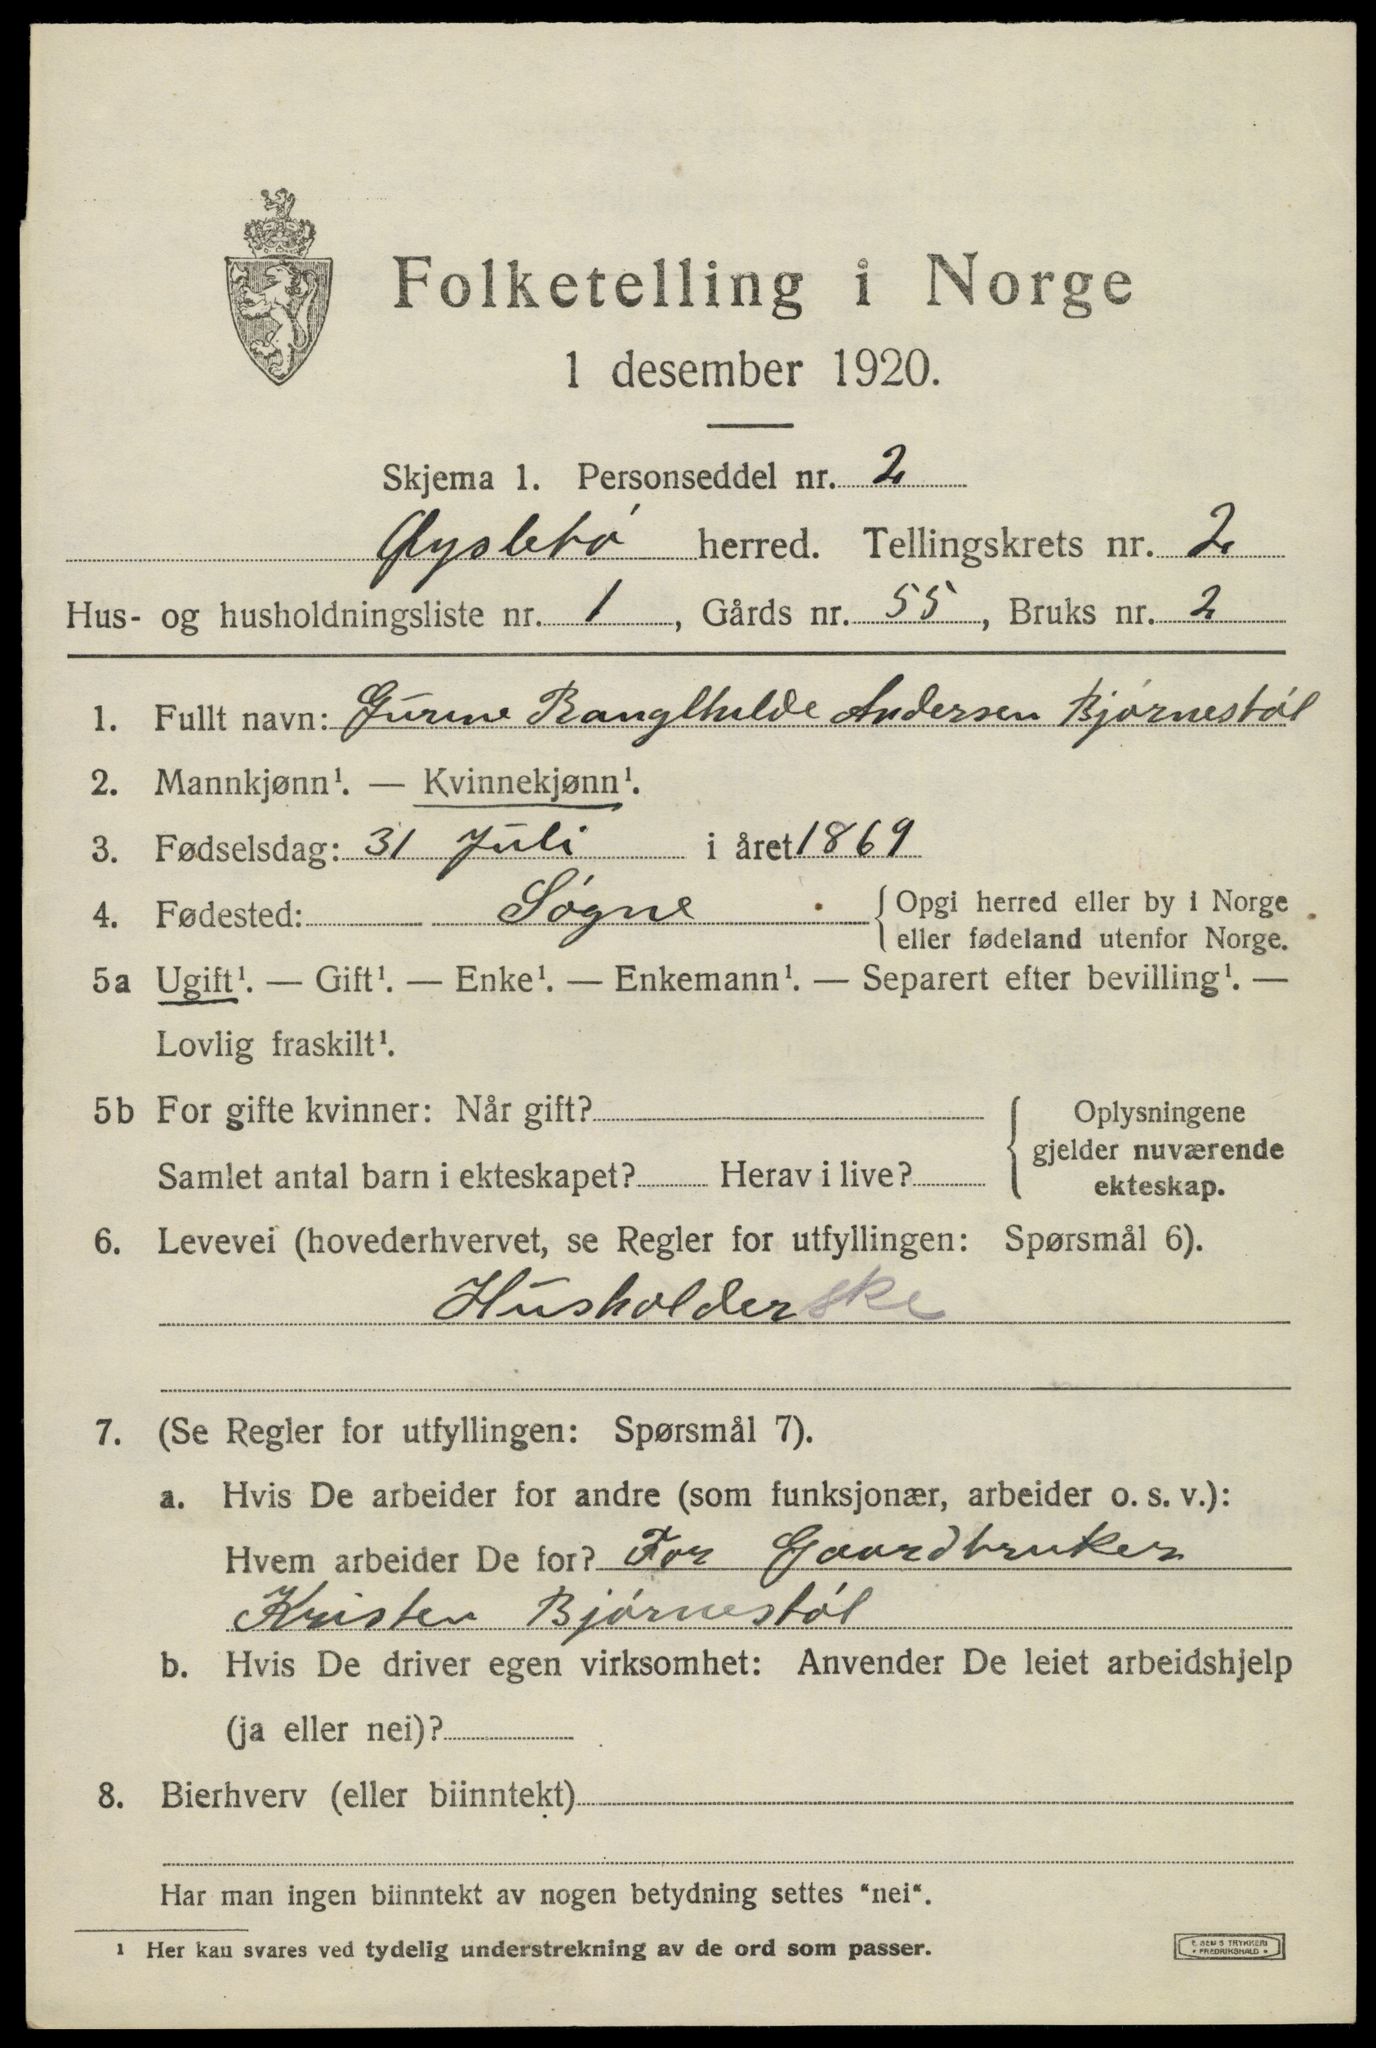 Folketelling i Norge
1 desember 1920.
Skjema 1. Personseddel nr. 2
Øyslebø herred. Tellingskrets nr. 2
Hus- og husholdningsliste nr. 1, Gårds nr. 55, Bruks nr. 2
1. Fullt navn: Gurine Ranglhilde Andersen Bjørnestøl
2. Mannkjønn¹. — Kvinnekjønn¹.
3. Fødselsdag: 31 Juli i året 1869
4. Fødested: Søgne { Opgi herred eller by i Norge
eller fødeland utenfor Norge.
5a Ugift¹. — Gift¹. — Enke¹. — Enkemann¹. — Separert efter bevilling¹. —
Lovlig fraskilt¹.
5b For gifte kvinner: Når gift? { Oplysningene
gjelder nuværende
Samlet antal barn i ekteskapet? Herav i live? ekteskap.
6. Levevei (hovederhvervet, se Regler for utfyllingen: Spørsmål 6).
Husholderske
7. (Se Regler for utfyllingen: Spørsmål 7).
a. Hvis De arbeider for andre (som funksjonær, arbeider o. s. v.):
Hvem arbeider De for? For Gaardbruker
Kristen Bjørnestøl
b. Hvis De driver egen virksomhet: Anvender De leiet arbeidshjelp
(ja eller nei)?
8. Bierhverv (eller biinntekt)
Har man ingen biinntekt av nogen betydning settes "nei".
¹ Her kan svares ved tydelig understrekning av de ord som passer.
TRYKKERI
• FREDRIKSHALD •